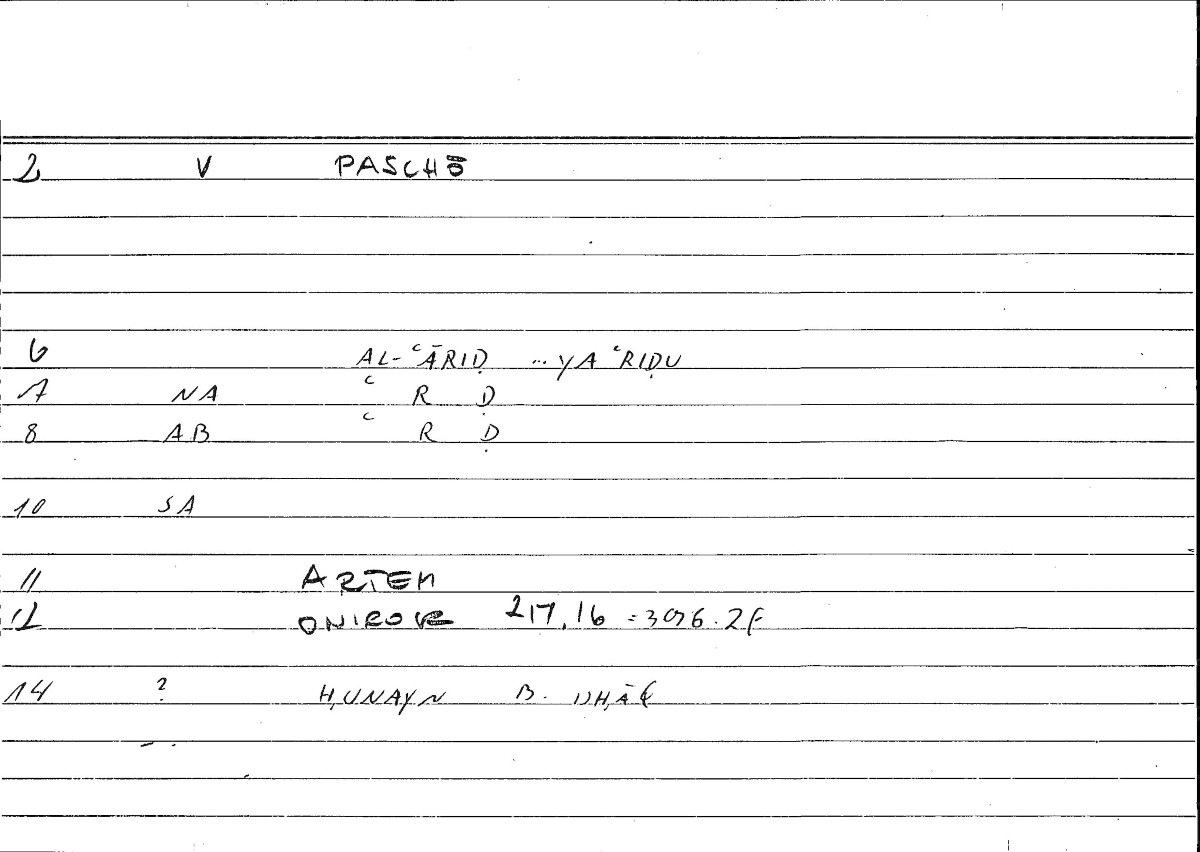 2 V PASCHŌ
6 AL-ʿĀRIḌ ... YAʿRIḌU
7 NA ʿ R Ḍ
8 AB ʿ R Ḍ
10 SA
11 ARTEM
12 ONIROCR 217.16 =
14 ? ḤUNAYN B.